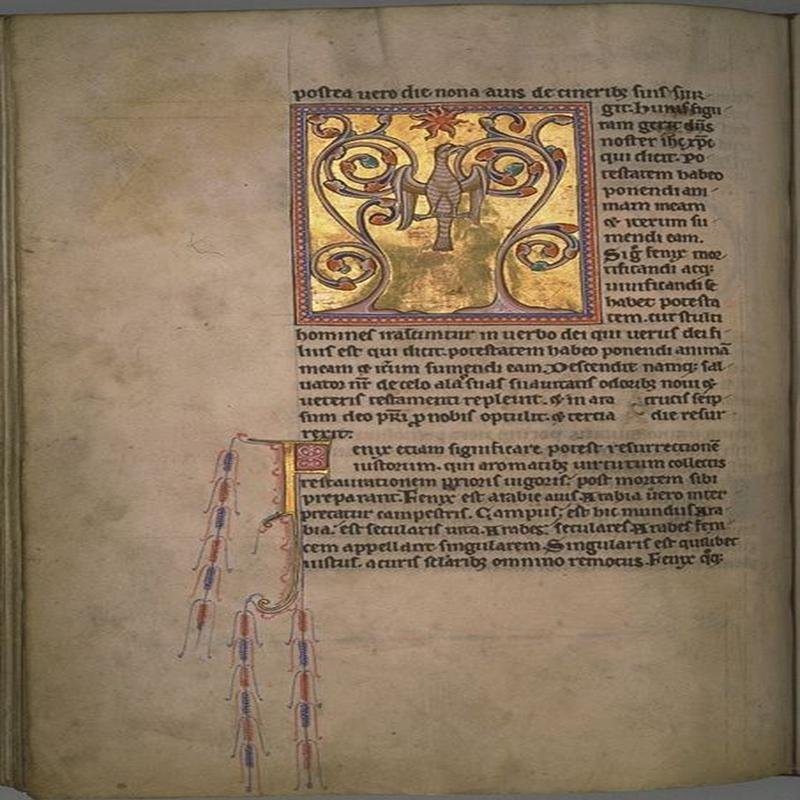 postea uero die nona auis de cineribꝫ suis sur
git. Huius figu
ram gerit dn̄s
noster ihc̄ xp̄c
qui dicit. Po
testatem habeo
ponendi ani
mam meam
& iterum su
mendi eam.
Si g̊ fenix mor
tificandi atq:
uiuificandi se
habet potesta
tem. cur stulti
homines irascuntur in uerbo dei qui uerus dei fi
lius est qui dicit. potestatem habeo ponendi animā
meam & it̄um sumendi eam. Descendit namq: sal
uator nr̄ de celo alas suas suauitatis odoribꝫ noui &
ueteris testamenti repleuit. & in ara crucis seip
sum deo pr̄i ꝓ nobis optulit. & tercia die resur
rexit.
Fenix etiam significare potest resurrectionē
iustorum. qui aromatibꝫ uirtutum collectis
restaurationem prioris uigoris. post mortem sibi
preparant. Fenix est arabie auis. Arabia ūero inter
pretatur campestris. Campus; est hic mundus. Ara
bia. est secularis uita. Arabes; seculares. Arabes feni
cem appellant singularem. Singularis est quilibet
iustus. a curis sc̄laribꝫ omnino remotus. Fenix q̊q: